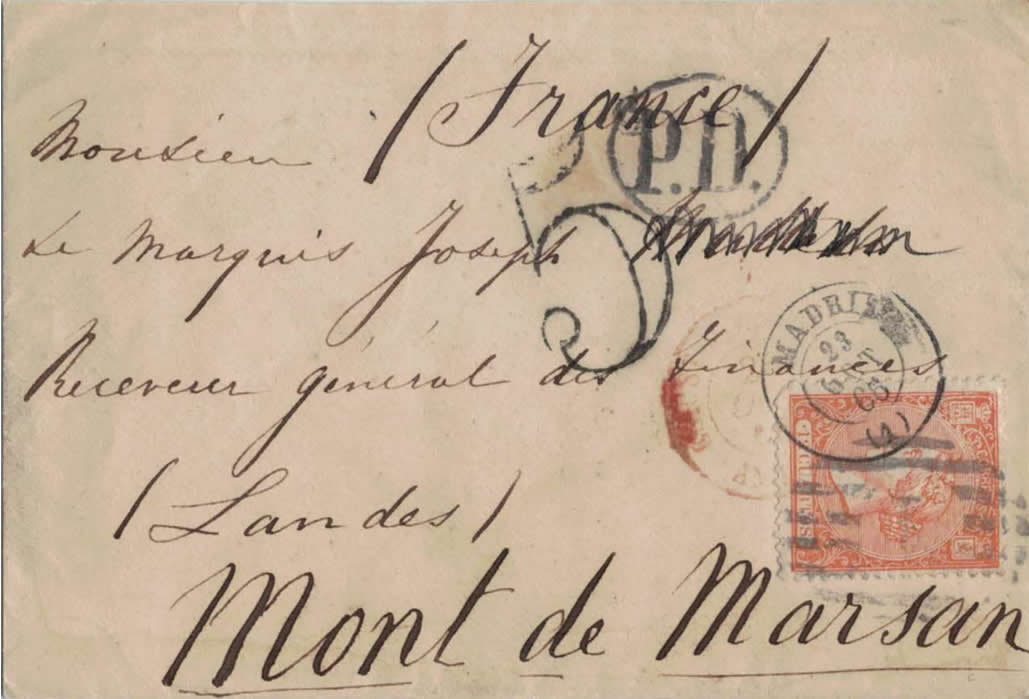 (France)
P.D.
Monsieur
5
Le Marquis Joseph
MADRID
23
66
(1)
Receveur général des Finances
(Landes)
Mont de Marsan